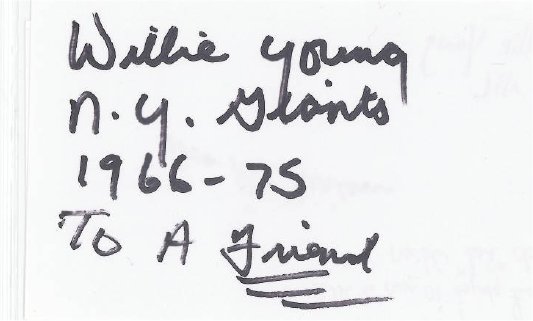 Willie Young
N.Y. Giants
1966-75
To A Friend